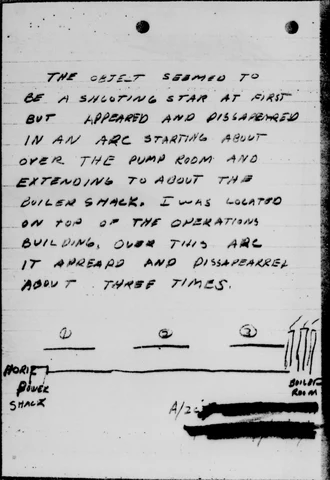 THE OBJET SEEMED TO
BE A SHOOTING STAR AT FIRST
BUT APPEARED AND DISSAPEARED
IN AN ARC STARTING ABOUT
OVER THE PUMP ROOM AND
EXTENDING TO ABOUT THE
BOILER SHACK. I WAS LOCATED
ON TOP OF THE OPERATIONS
BUILDING, OVER THIS ARC
IT APREARD AND DISSAPEARREL
ABOUT THREE TIMES.
① ② ③
SHACK
ROOM
A/2C